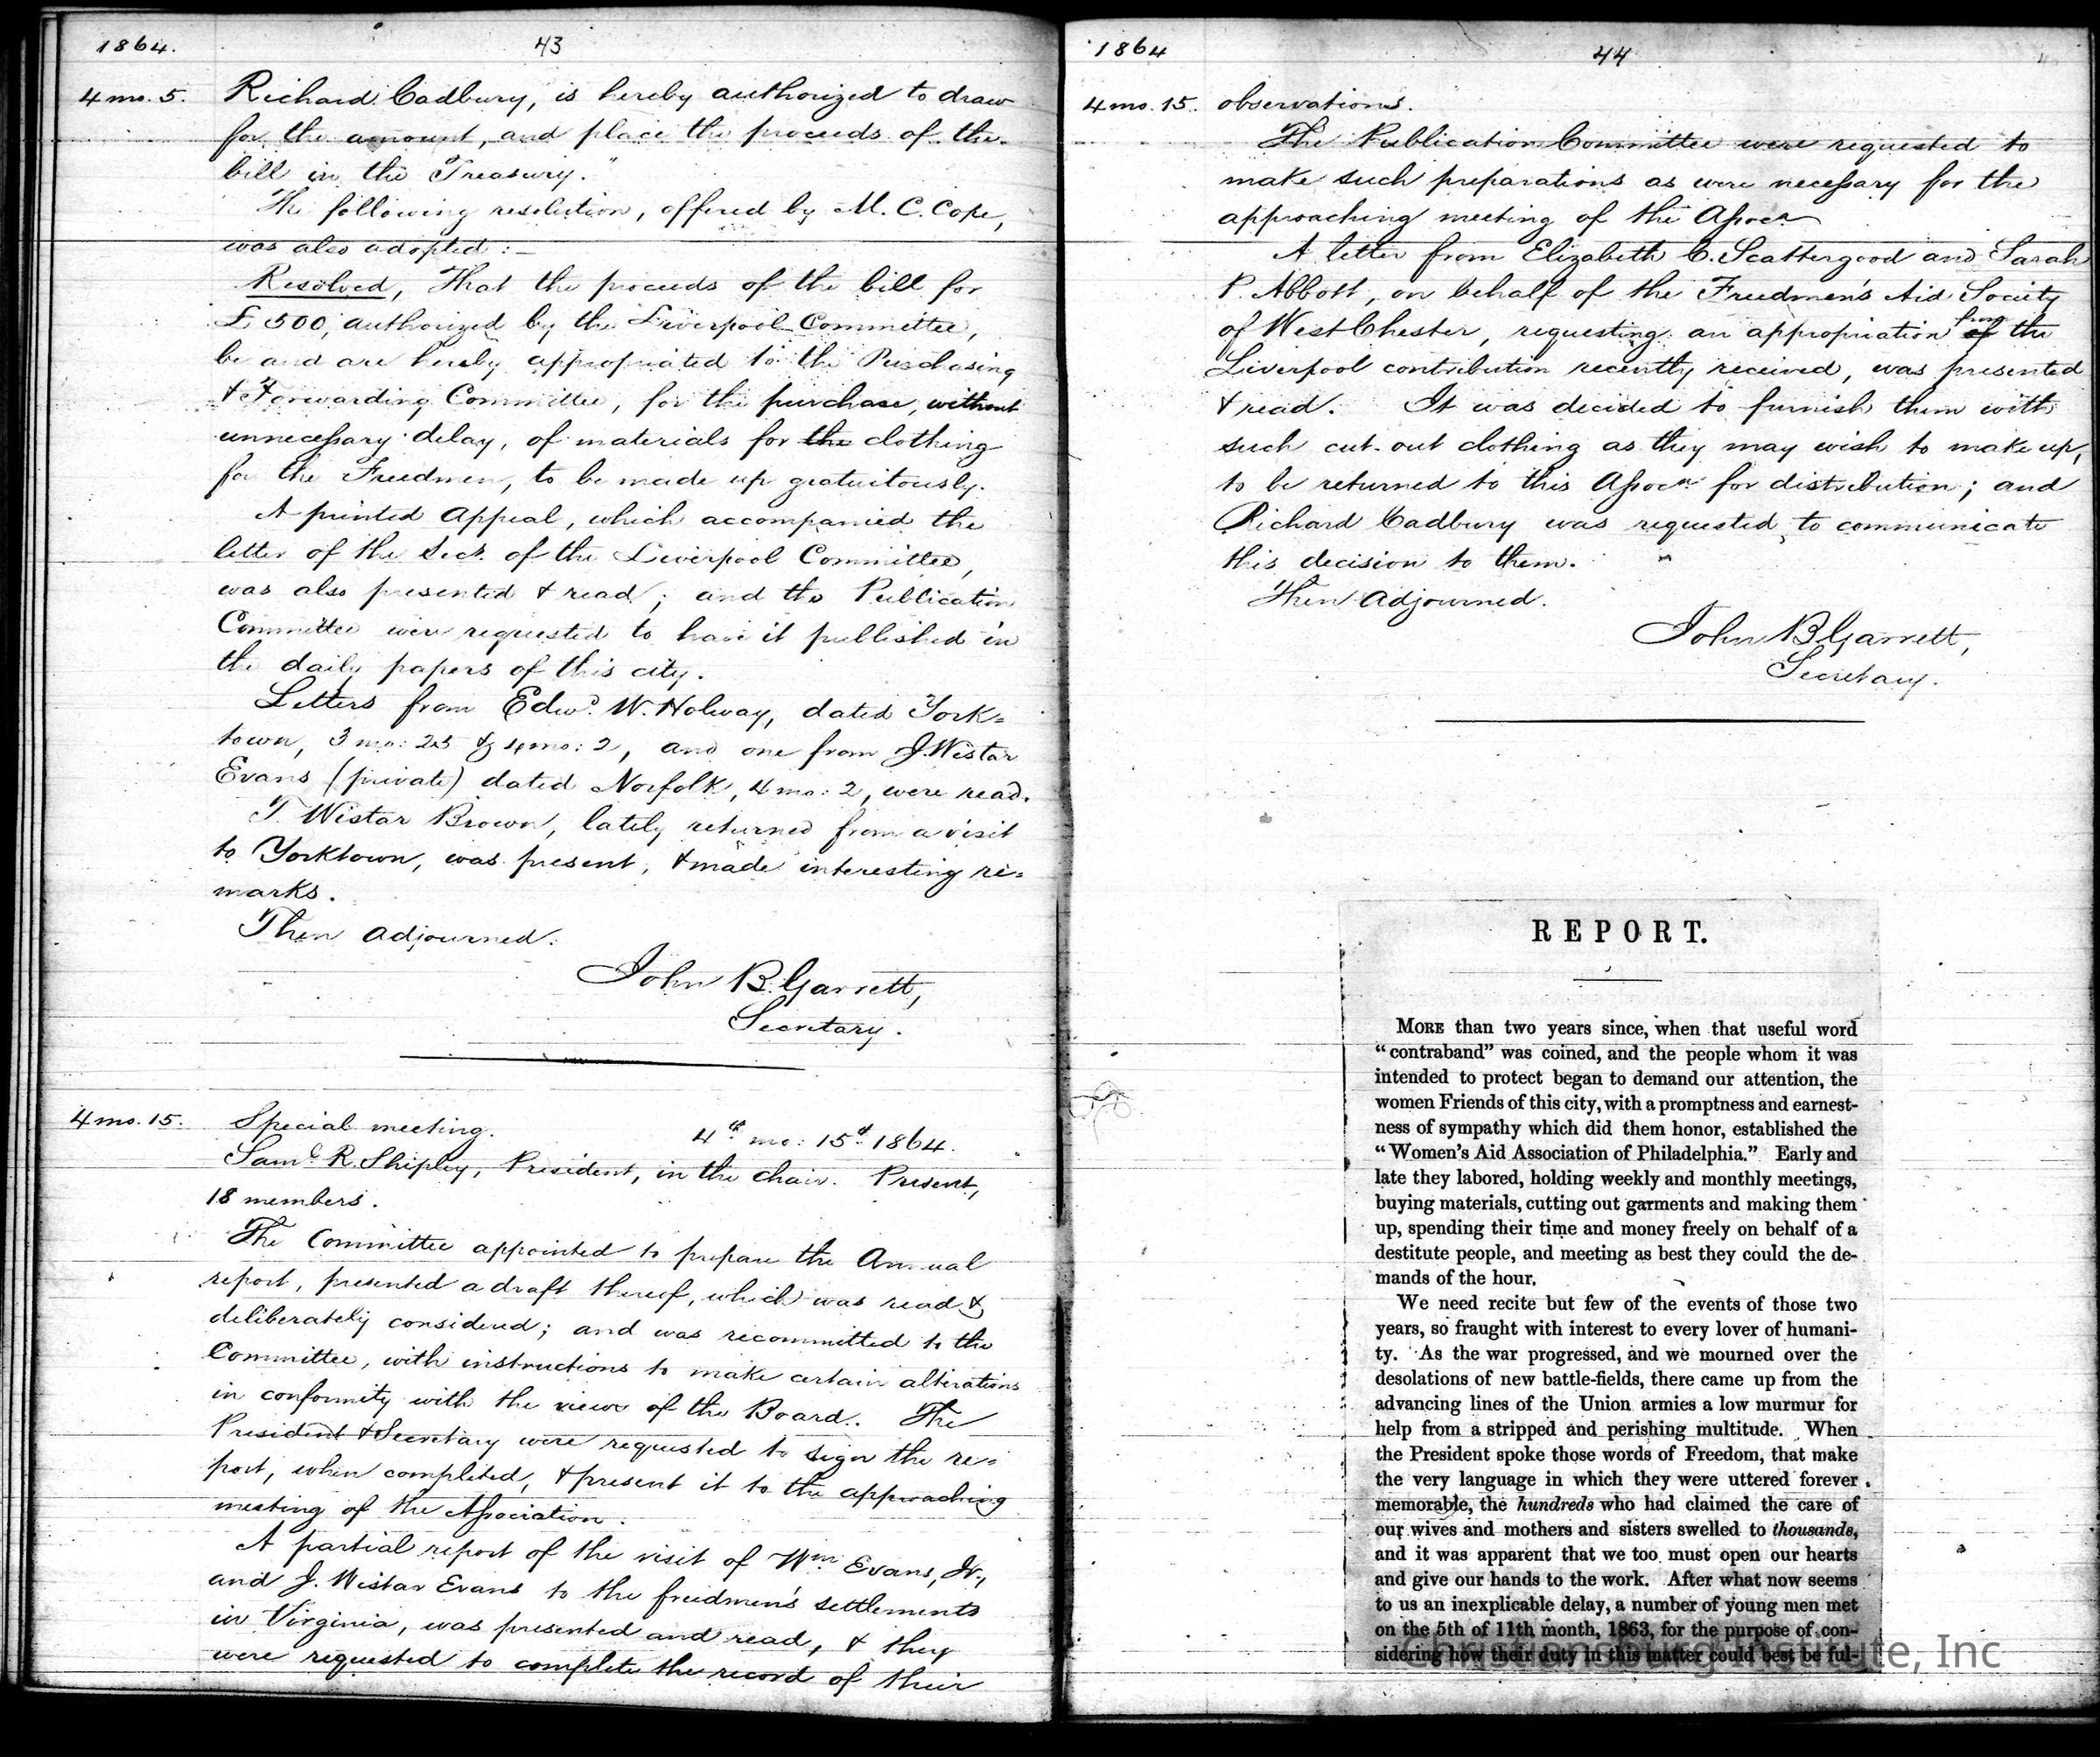 1864.
43
4 mo. 5.
Richard Cadbury, is hereby authorized to draw
for the amount, and place the proceeds of the
bill in the Treasury."
The following resolution, offered by M. C. Cope,
was also adopted:—
Resolved, That the proceeds of the bill for
£500, authorized by the Liverpool Committee,
be and are hereby appropriated to the Purchasing
& Forwarding Committee, for the purchase, without
unnecessary delay, of materials for the clothing
for the Freedmen, to be made up gratuitously.
A printed Appeal, which accompanied the
letter of the Secy. of the Liverpool Committee,
was also presented & read; and the Publication
Committee were requested to have it published in
the daily papers of this city.
Letters from Edwd. W. Holway, dated York=
town, 3 mo: 25 & 4 mo: 2, and one from J. Wistar
Evans (private) dated Norfolk, 4 mo: 2, were read.
T. Wistar Brown, lately returned from a visit
to Yorktown, was present, & made interesting re=
marks.
Then adjourned.
John B. Garrett,
Secretary.
4 mo. 15.
Special meeting.
4th mo: 15th 1864.
Saml. R. Shipley, President, in the chair. Present,
18 members.
The Committee appointed to prepare the Annual
report, presented a draft thereof, which was read &
deliberately considered; and was recommitted to the
Committee, with instructions to make certain alterations
in conformity with the views of the Board. The
President & Secretary were requested to sign the re=
port, when completed, & present it to the approaching
meeting of the Association.
A partial report of the visit of Wm. Evans, Jr.,
and J. Wistar Evans to the freedmen's settlements
in Virginia, was presented and read, & they
were requested to complete the record of their
1864
44
4 mo. 15.
observations.
The Publication Committee were requested to
make such preparations as were necessary for the
approaching meeting of the Assocn.
A letter from Elizabeth C. Scattergood and Sarah
P. Abbott, on behalf of the Freedmen's Aid Society
of West Chester, requesting an appropriation of from the
Liverpool contribution recently received, was presented
& read. It was decided to furnish them with
such cut-out clothing as they may wish to make up,
to be returned to this Assocn. for distribution; and
Richard Cadbury was requested to communicate
this decision to them.
Then adjourned.
John B. Garrett,
Secretary.
REPORT.
MORE than two years since, when that useful word
"contraband" was coined, and the people whom it was
intended to protect began to demand our attention, the
women Friends of this city, with a promptness and earnest-
ness of sympathy which did them honor, established the
"Women's Aid Association of Philadelphia." Early and
late they labored, holding weekly and monthly meetings,
buying materials, cutting out garments and making them
up, spending their time and money freely on behalf of a
destitute people, and meeting as best they could the de-
mands of the hour.
We need recite but few of the events of those two
years, so fraught with interest to every lover of humani-
ty. As the war progressed, and we mourned over the
desolations of new battle-fields, there came up from the
advancing lines of the Union armies a low murmur for
help from a stripped and perishing multitude. When
the President spoke those words of Freedom, that make
the very language in which they were uttered forever
memorable, the hundreds who had claimed the care of
our wives and mothers and sisters swelled to thousands,
and it was apparent that we too must open our hearts
and give our hands to the work. After what now seems
to us an inexplicable delay, a number of young men met
on the 5th of 11th month, 1863, for the purpose of con-
sidering how their duty in this matter could best be ful-
Christiansburg Institute, Inc